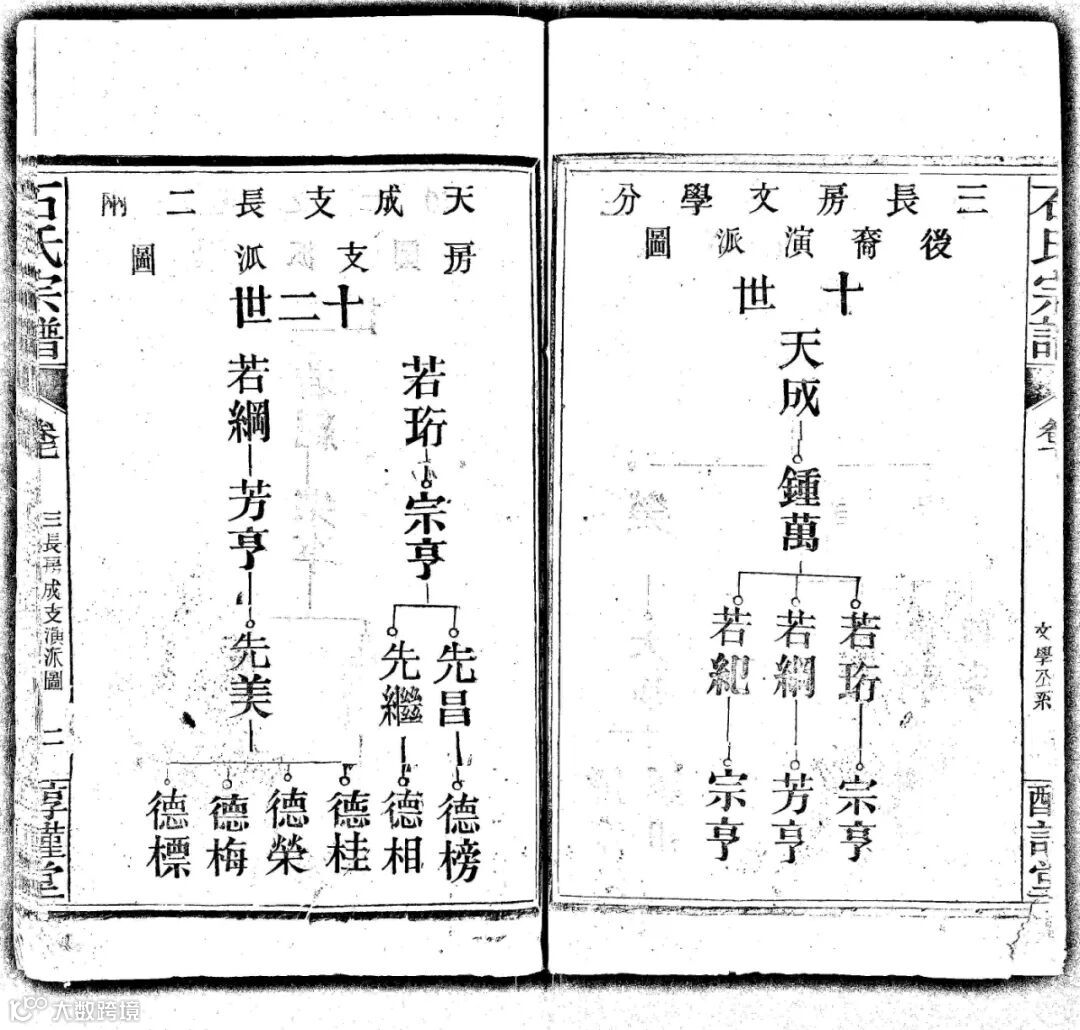 三長房文學分
後裔演派圖
十世
天成
鍾萬
若珩
若綱
若紀
宗亨
芳亨
宗亨
石氏宗譜
文學
天成支長二兩
房支派圖
十二世
若珩
宗亨
先昌
先繼
德榜
德相
若綱
芳亨
先美
德桂
德榮
德梅
德標
石氏宗譜
三長房成支演派圖
二
惇謹堂
大数跨境